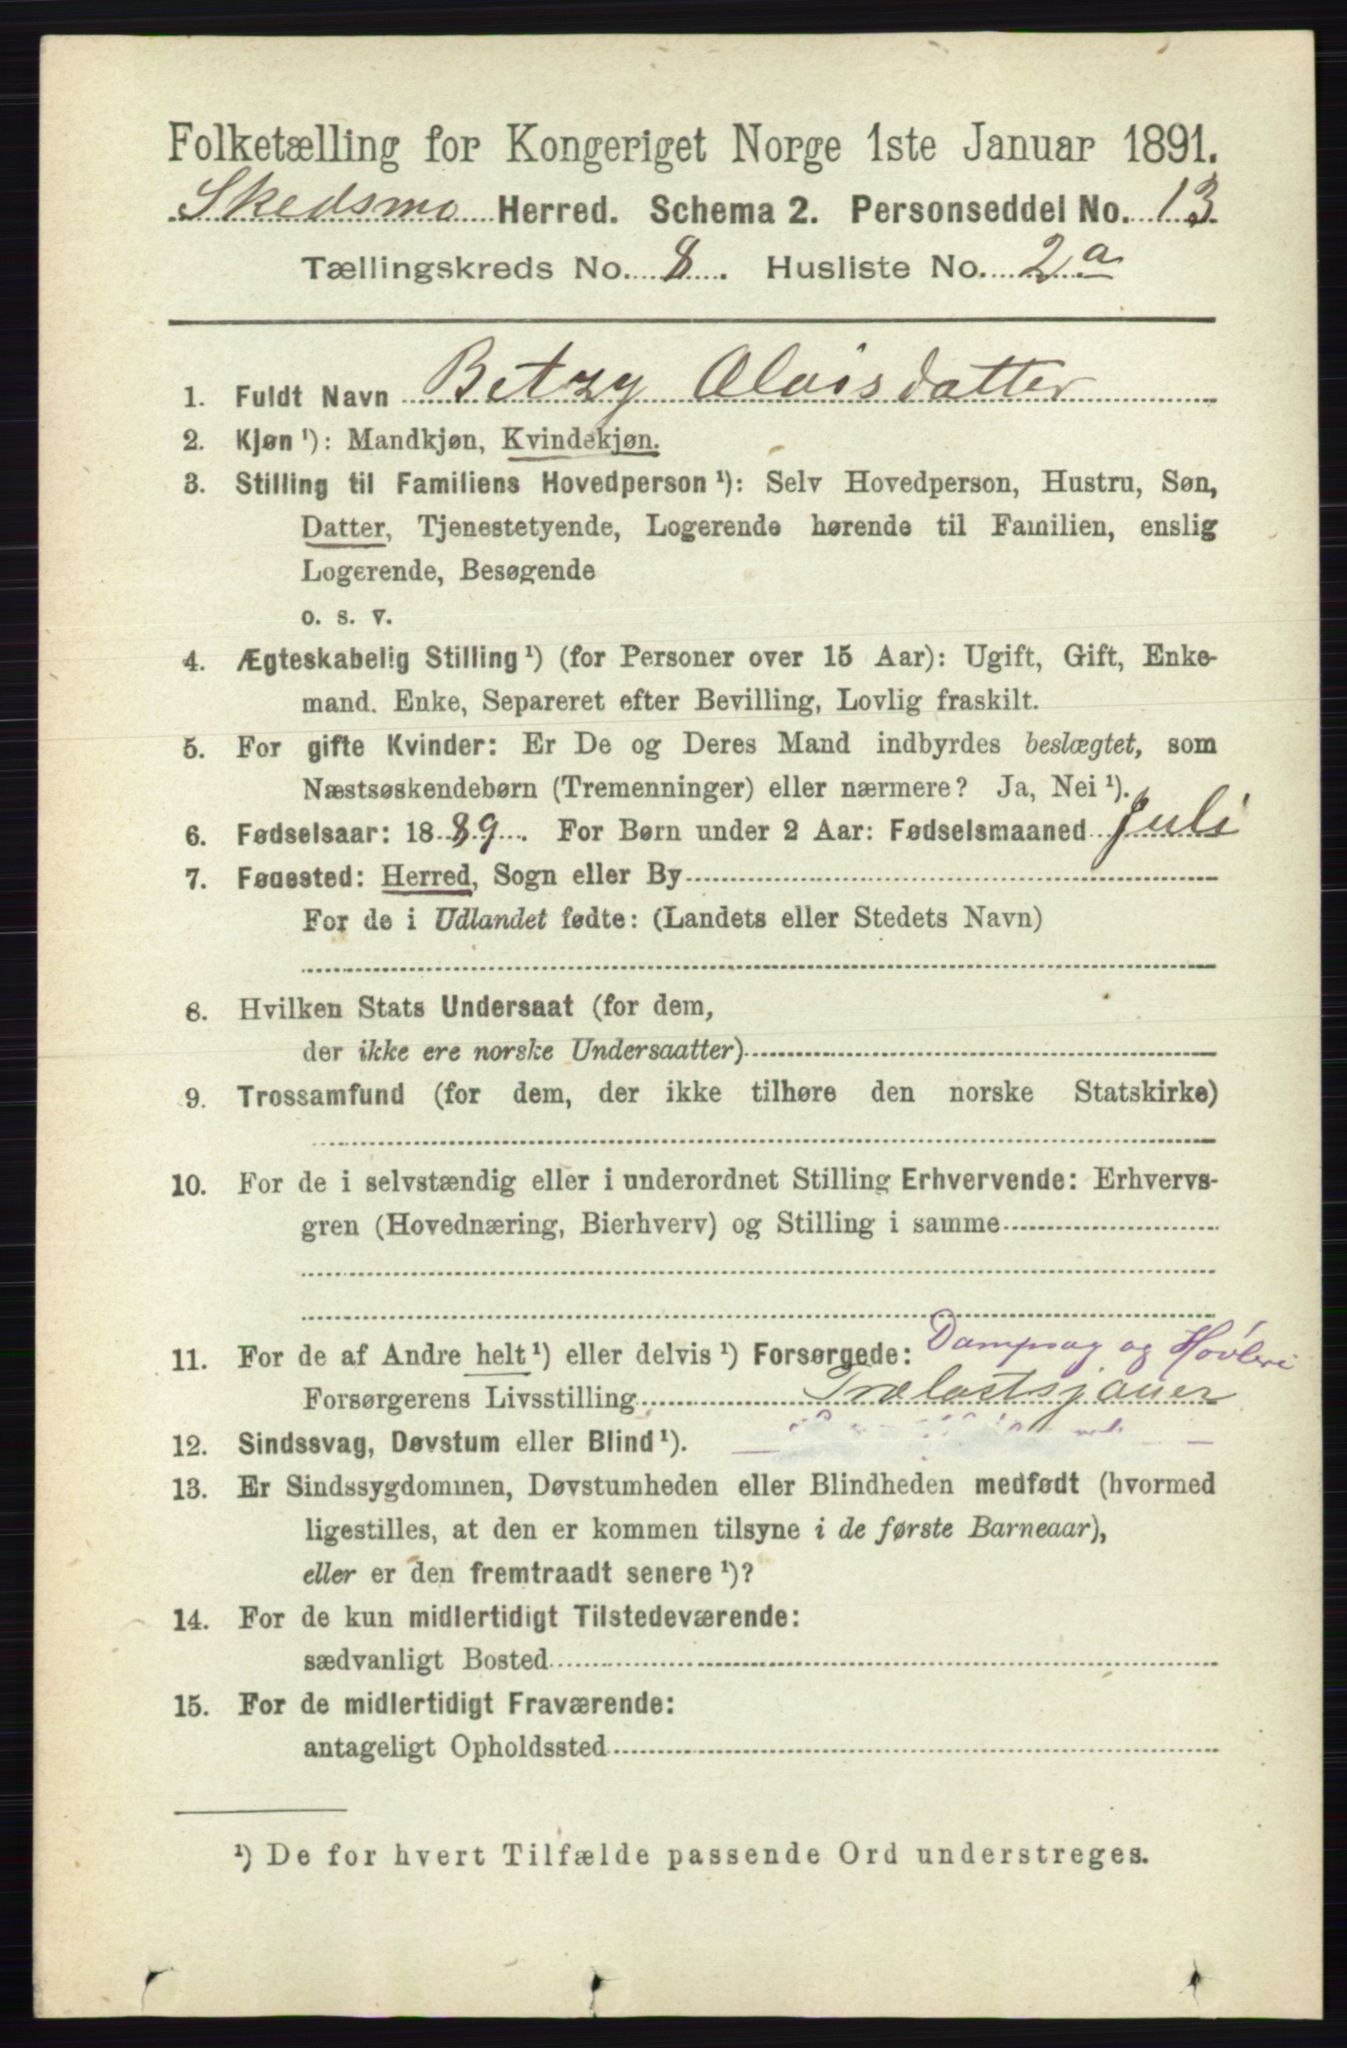 Folketælling for Kongeriget Norge 1ste Januar 1891.
Skedsmo Herred. Schema 2. Personseddel No. 13
Tællingskreds No. 8. Husliste No. 2a
1. Fuldt Navn Betzy Olaisdatter
2. Kjøn ¹): Mandkjøn, Kvindekjøn.
3. Stilling til Familiens Hovedperson ¹): Selv Hovedperson, Hustru, Søn,
Datter, Tjenestetyende, Logerende hørende til Familien, enslig
Logerende, Besøgende
o. s. v.
4. Ægteskabelig Stilling ¹) (for Personer over 15 Aar): Ugift, Gift, Enke-
mand. Enke, Separeret efter Bevilling, Lovlig fraskilt.
5. For gifte Kvinder: Er De og Deres Mand indbyrdes beslægtet, som
Næstsøskendebørn (Tremenninger) eller nærmere? Ja, Nei ¹).
6. Fødselsaar: 1889. For Børn under 2 Aar: Fødselsmaaned Juli
7. Fødested: Herred, Sogn eller By
For de i Udlandet fødte: (Landets eller Stedets Navn)
8. Hvilken Stats Undersaat (for dem,
der ikke ere norske Undersaatter)
9. Trossamfund (for dem, der ikke tilhøre den norske Statskirke)
10. For de i selvstændig eller i underordnet Stilling Erhvervende: Erhvervs-
gren (Hovednæring, Bierhverv) og Stilling i samme
11. For de af Andre helt ¹) eller delvis ¹) Forsørgede: Dampsag og Høvleri
Forsørgerens Livsstilling Trælastsjauer
12. Sindssvag, Døvstum eller Blind ¹).
13. Er Sindssygdommen, Døvstumheden eller Blindheden medfødt (hvormed
ligestilles, at den er kommen tilsyne i de første Barneaar),
eller er den fremtraadt senere ¹)?
14. For de kun midlertidigt Tilstedeværende:
sædvanligt Bosted
15. For de midlertidigt Fraværende:
antageligt Opholdssted
¹) De for hvert Tilfælde passende Ord understreges.